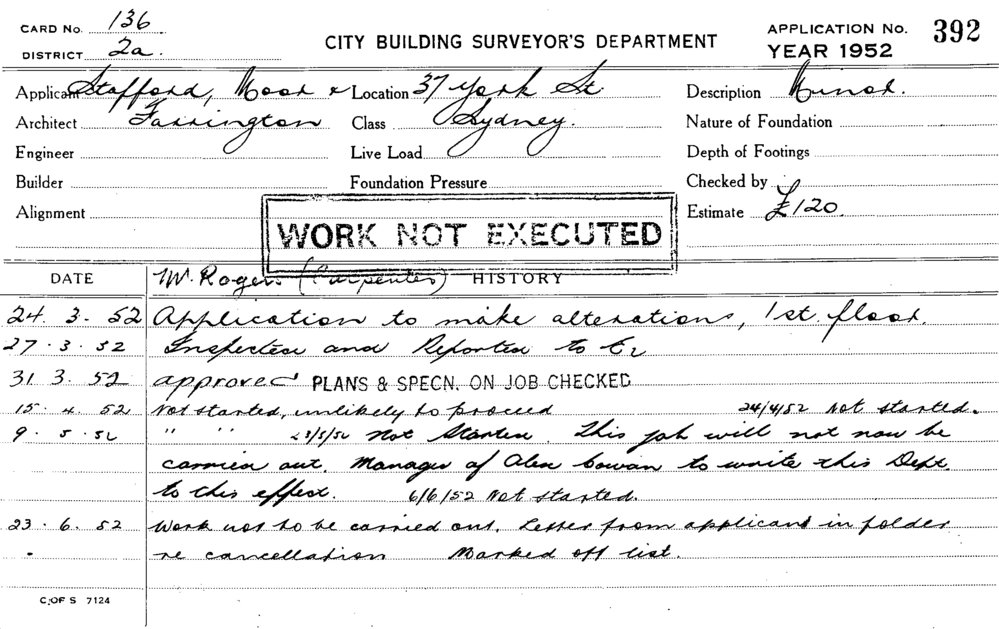 CARD No. 136
DISTRICT 2a.
CITY BUILDING SURVEYOR'S DEPARTMENT
APPLICATION No. 392
YEAR 1952
Applicant Stafford, Moor & Location 37 York St. Description Minor.
Architect Farrington Class Sydney. Nature of Foundation
Engineer Live Load Depth of Footings
Builder Foundation Pressure Checked by
Alignment Estimate £120.
WORK NOT EXECUTED
DATE W. Rogers (Carpenter) HISTORY
24. 3. 52 Application to make alterations, 1st. floor.
27. 3. 52 Inspected and Reported to
31. 3. 52 approved PLANS & SPECN. ON JOB CHECKED
15. 4. 52 Not started, unlikely to proceed 24/4/52 Not started.
9. 5. 52 " " 23/5/52 Not Started. This job will not now be
carried out. Manager of Alex Cowan to write this Dept.
to this effect. 6/6/52 Not started.
23. 6. 52 Work not to be carried out. Letter from applicant in folder
re cancellation Marked off list.
C. OF S 7124